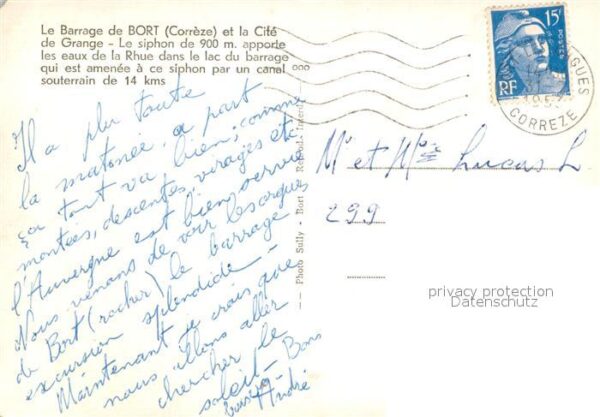 Le Barrage de BORT (Corrèze) et la Cité
de Grange - Le siphon de 900 m. apporte
les eaux de la Rhue dans le lac du barrage
qui est amenée à ce siphon par un canal
souterrain de 14 kms
Il a plu toute
la matinée, a part
ça tout va bien; comme
montées, descentes, virages etc
l'Auvergne est bien servie
Nous venons de voir les orgues
de Bort (rocher) le barrage
excursion splendide -
Maintenant je crois que
nous allons aller
chercher le
soleil - Bons
baisers
André
-- Photo Sully - Bort
15F
POSTES
RF
GUES
195
CORREZE
Mr et Mme Lucas L
299
privacy protection
Datenschutz